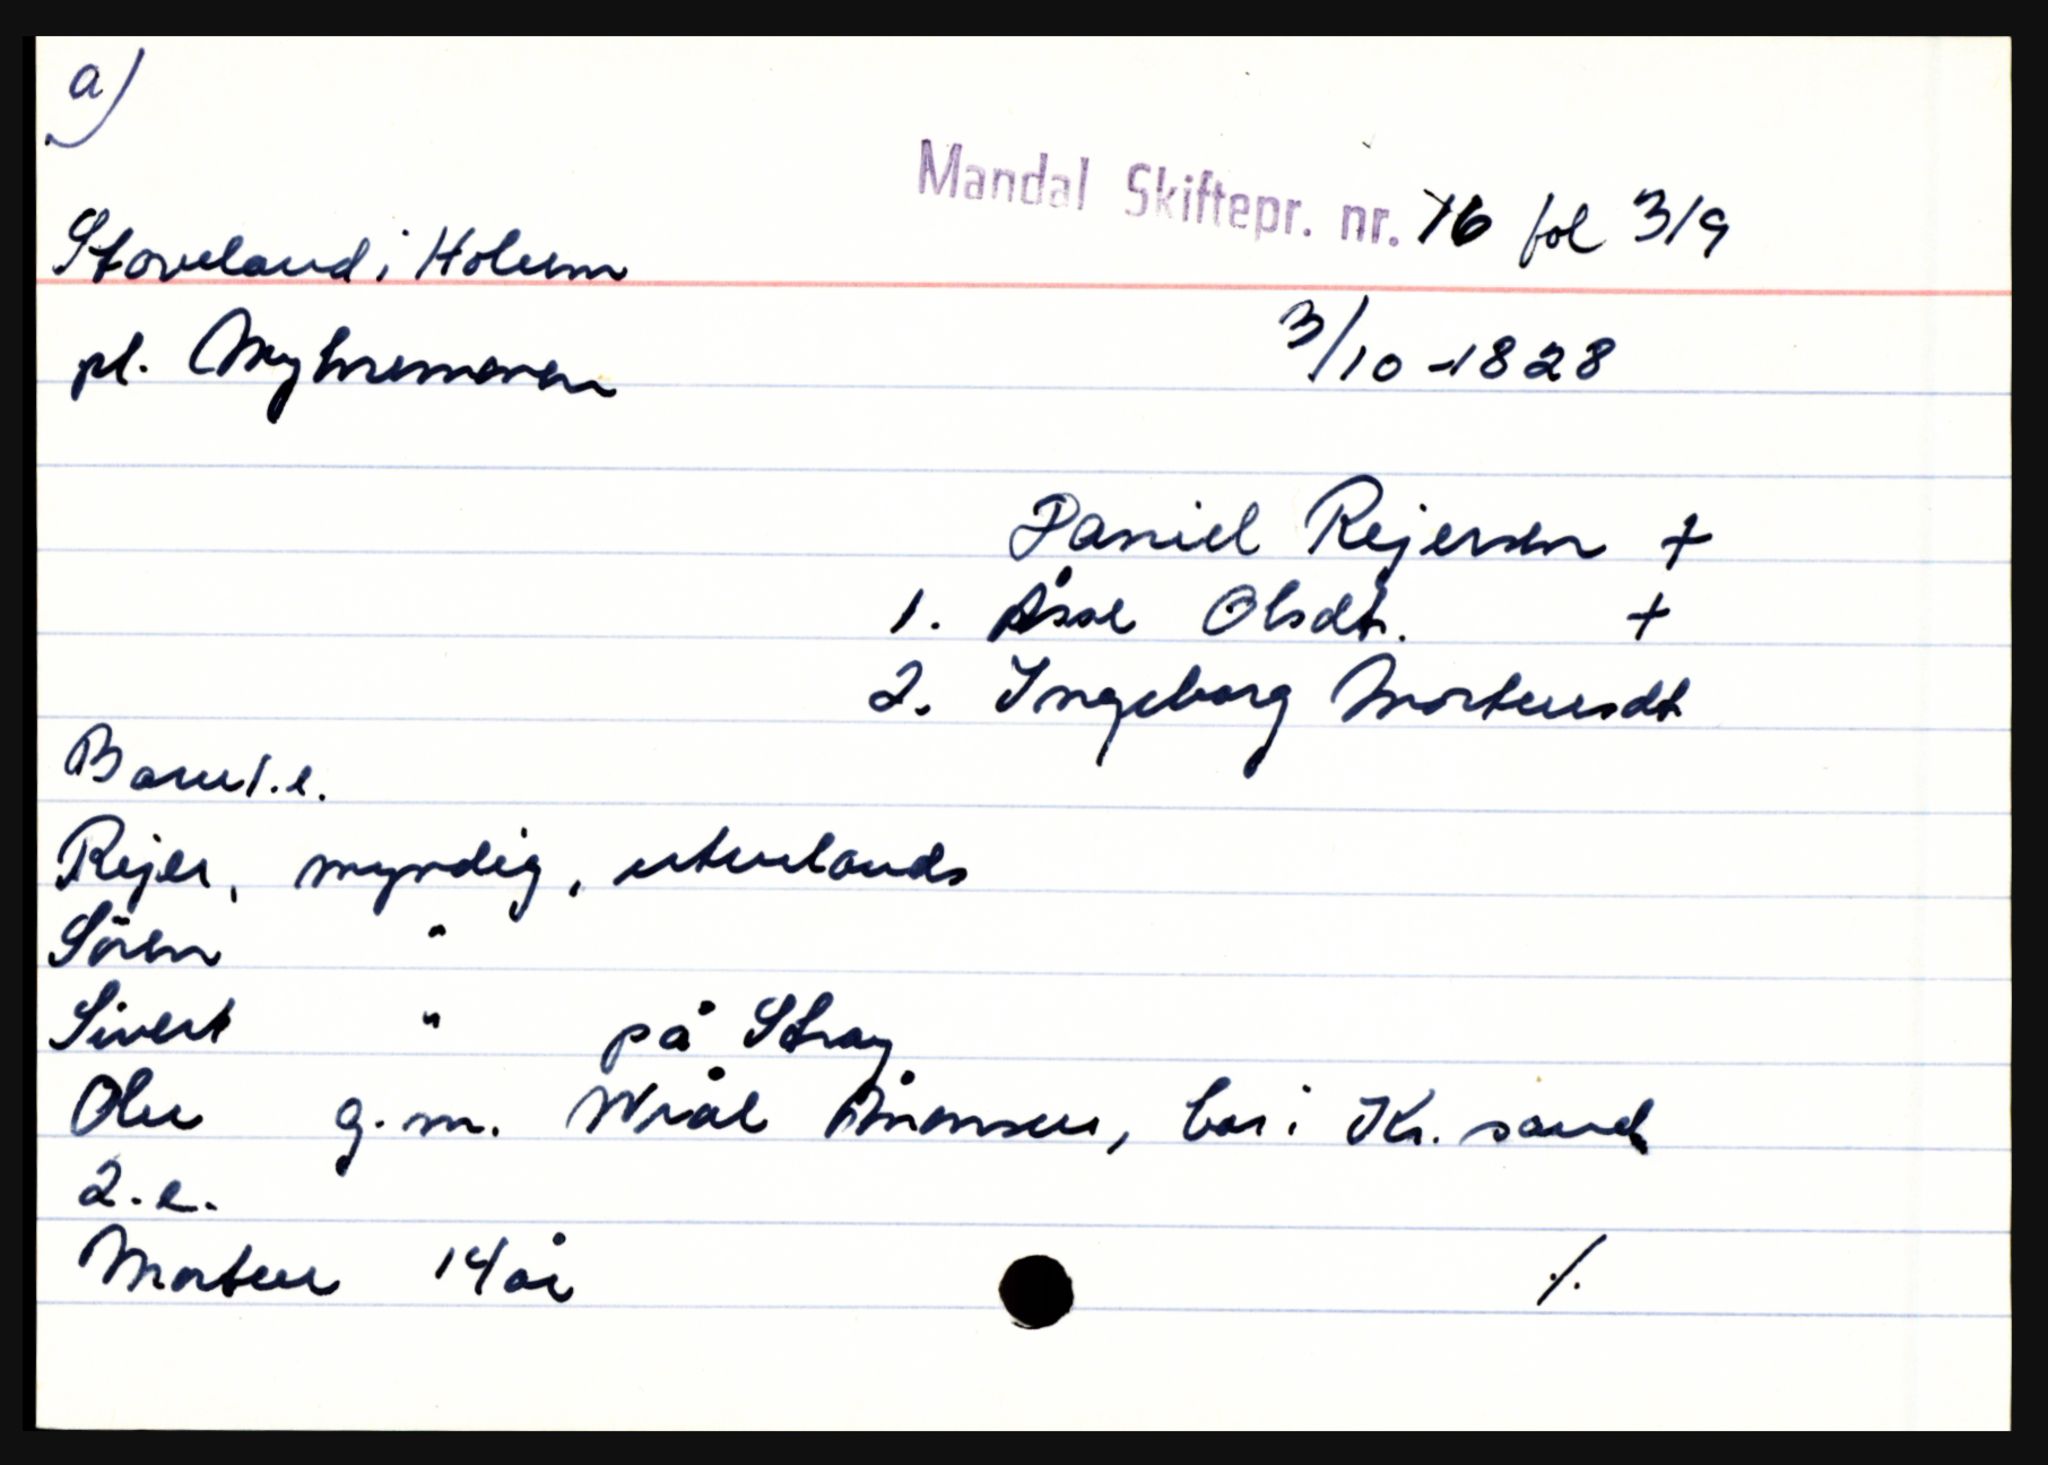 a)
Mandal Skiftepr. nr. 16 fol 319
Stoveland i Holum
pl. Myhremoren 3/10 - 1828
Daniel Rejersen +
1. Åse Olsdt. +
2. Ingeborg Mortensdt
Barn 1.e.
Rejer, myndig, utenlands
Sören "
Sivert " på Stray
Olene g.m. Wrål Ånonsen, bor i Kr.sand
2.e.
Morten 14 år
./.